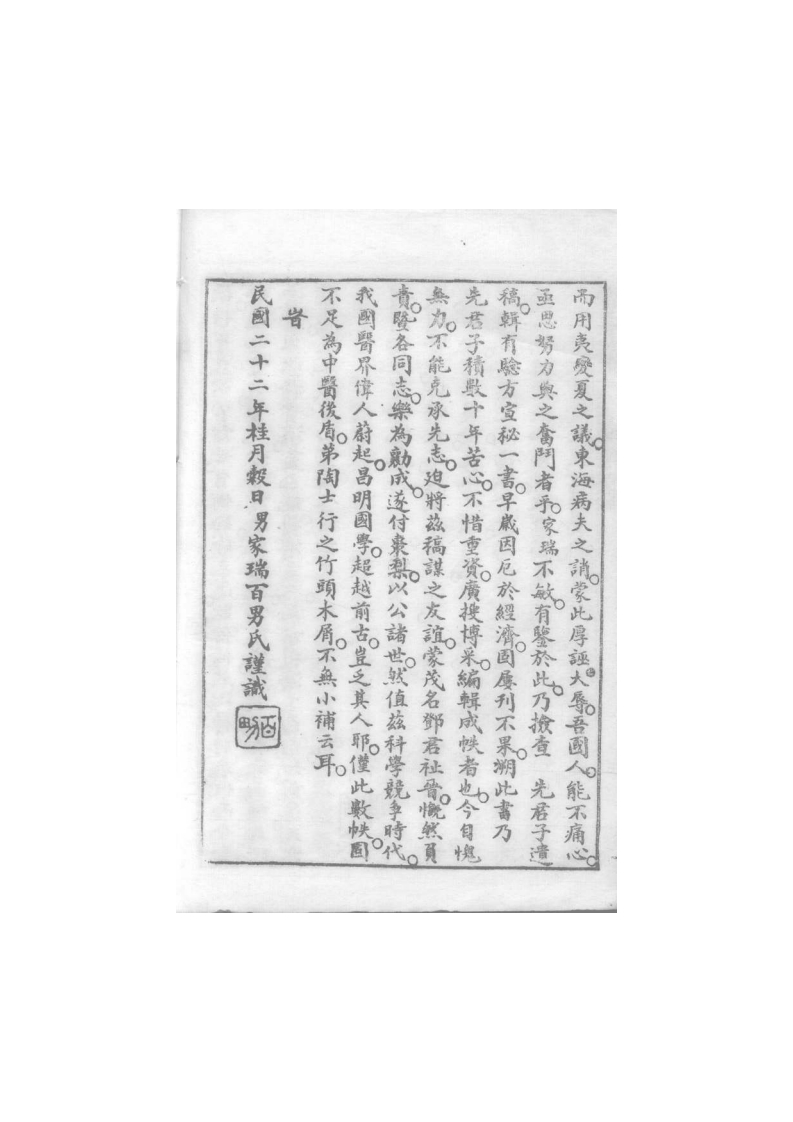 而用夷變夏之議。東海病夫之誚。蒙此厚誣大辱。吾國人。能不痛心。
亟思努力與之奮鬥者乎。家瑞不敏。有鑒於此。乃撿查 先君子遺
稿。輯有驗方宣秘一書。早歲因厄於經濟。固屢刊不果。溯此書乃
先君子積數十年苦心。不惜重資。廣搜博采。編輯成帙者也。今自愧
無力。不能克承先志。迫將茲稿謀之友誼。蒙茂名鄧君祉晉。慨然負
責。暨各同志。樂為勷成。遂付棗梨。以公諸世。然值茲科學競爭時代。
我國醫界偉人蔚起。昌明國學。超越前古。豈乏其人耶。僅此數帙。固
不足為中醫後盾。第陶士行之竹頭木屑。不無小補云耳。
旹
民國二十二年桂月穀日男家瑞百男氏謹識
百男